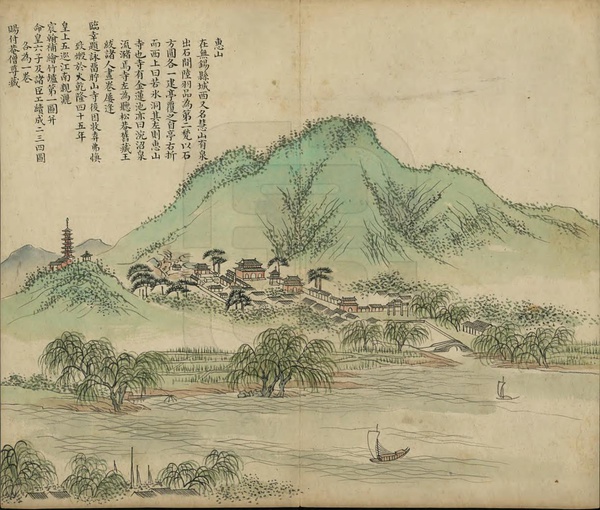 惠山
在無錫縣城西又名慧山有泉
出石間陸羽品為第二甃以石
方圓各一建亭覆之自亭右折
而西上曰若冰洞其左則惠山
寺也寺有金蓮池亦曰浣沼泉
流瀦焉寺左為聽松菴舊藏王
紱諸人畫卷屢
臨幸題詠舊貯山寺後因收弆弗慎
致燬於火乾隆四十五年
皇上五巡江南親灑
宸翰補繪竹爐第一圖并
命皇六子及諸臣工續成二三四圖
各為一卷
賜付菴僧尊藏